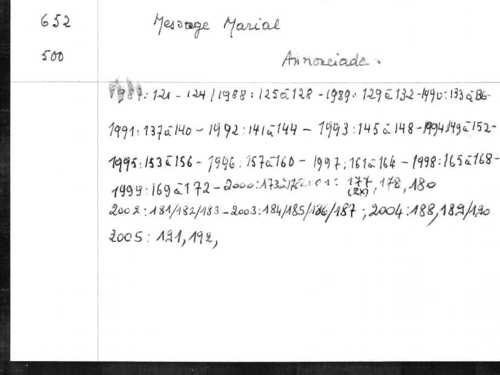 652 Message Marial
500 Annonciade.
1987: 121 - 124 / 1988: 125 à 128 - 1989: 129 à 132 - 1990: 133 à 136
1991: 137 à 140 - 1992: 141 à 144 - 1993: 145 à 148 - 1994 149 à 152 -
1995: 153 à 156 - 1996: 157 à 160 - 1997: 161 à 164 - 1998: 165 à 168 -
1999: 169 à 172 - 2000: 173 à 176: 01: 177 (2x), 178, 180
2002: 181/182/183 - 2003: 184/185/186/187; 2004: 188, 189/190
2005: 191, 192,